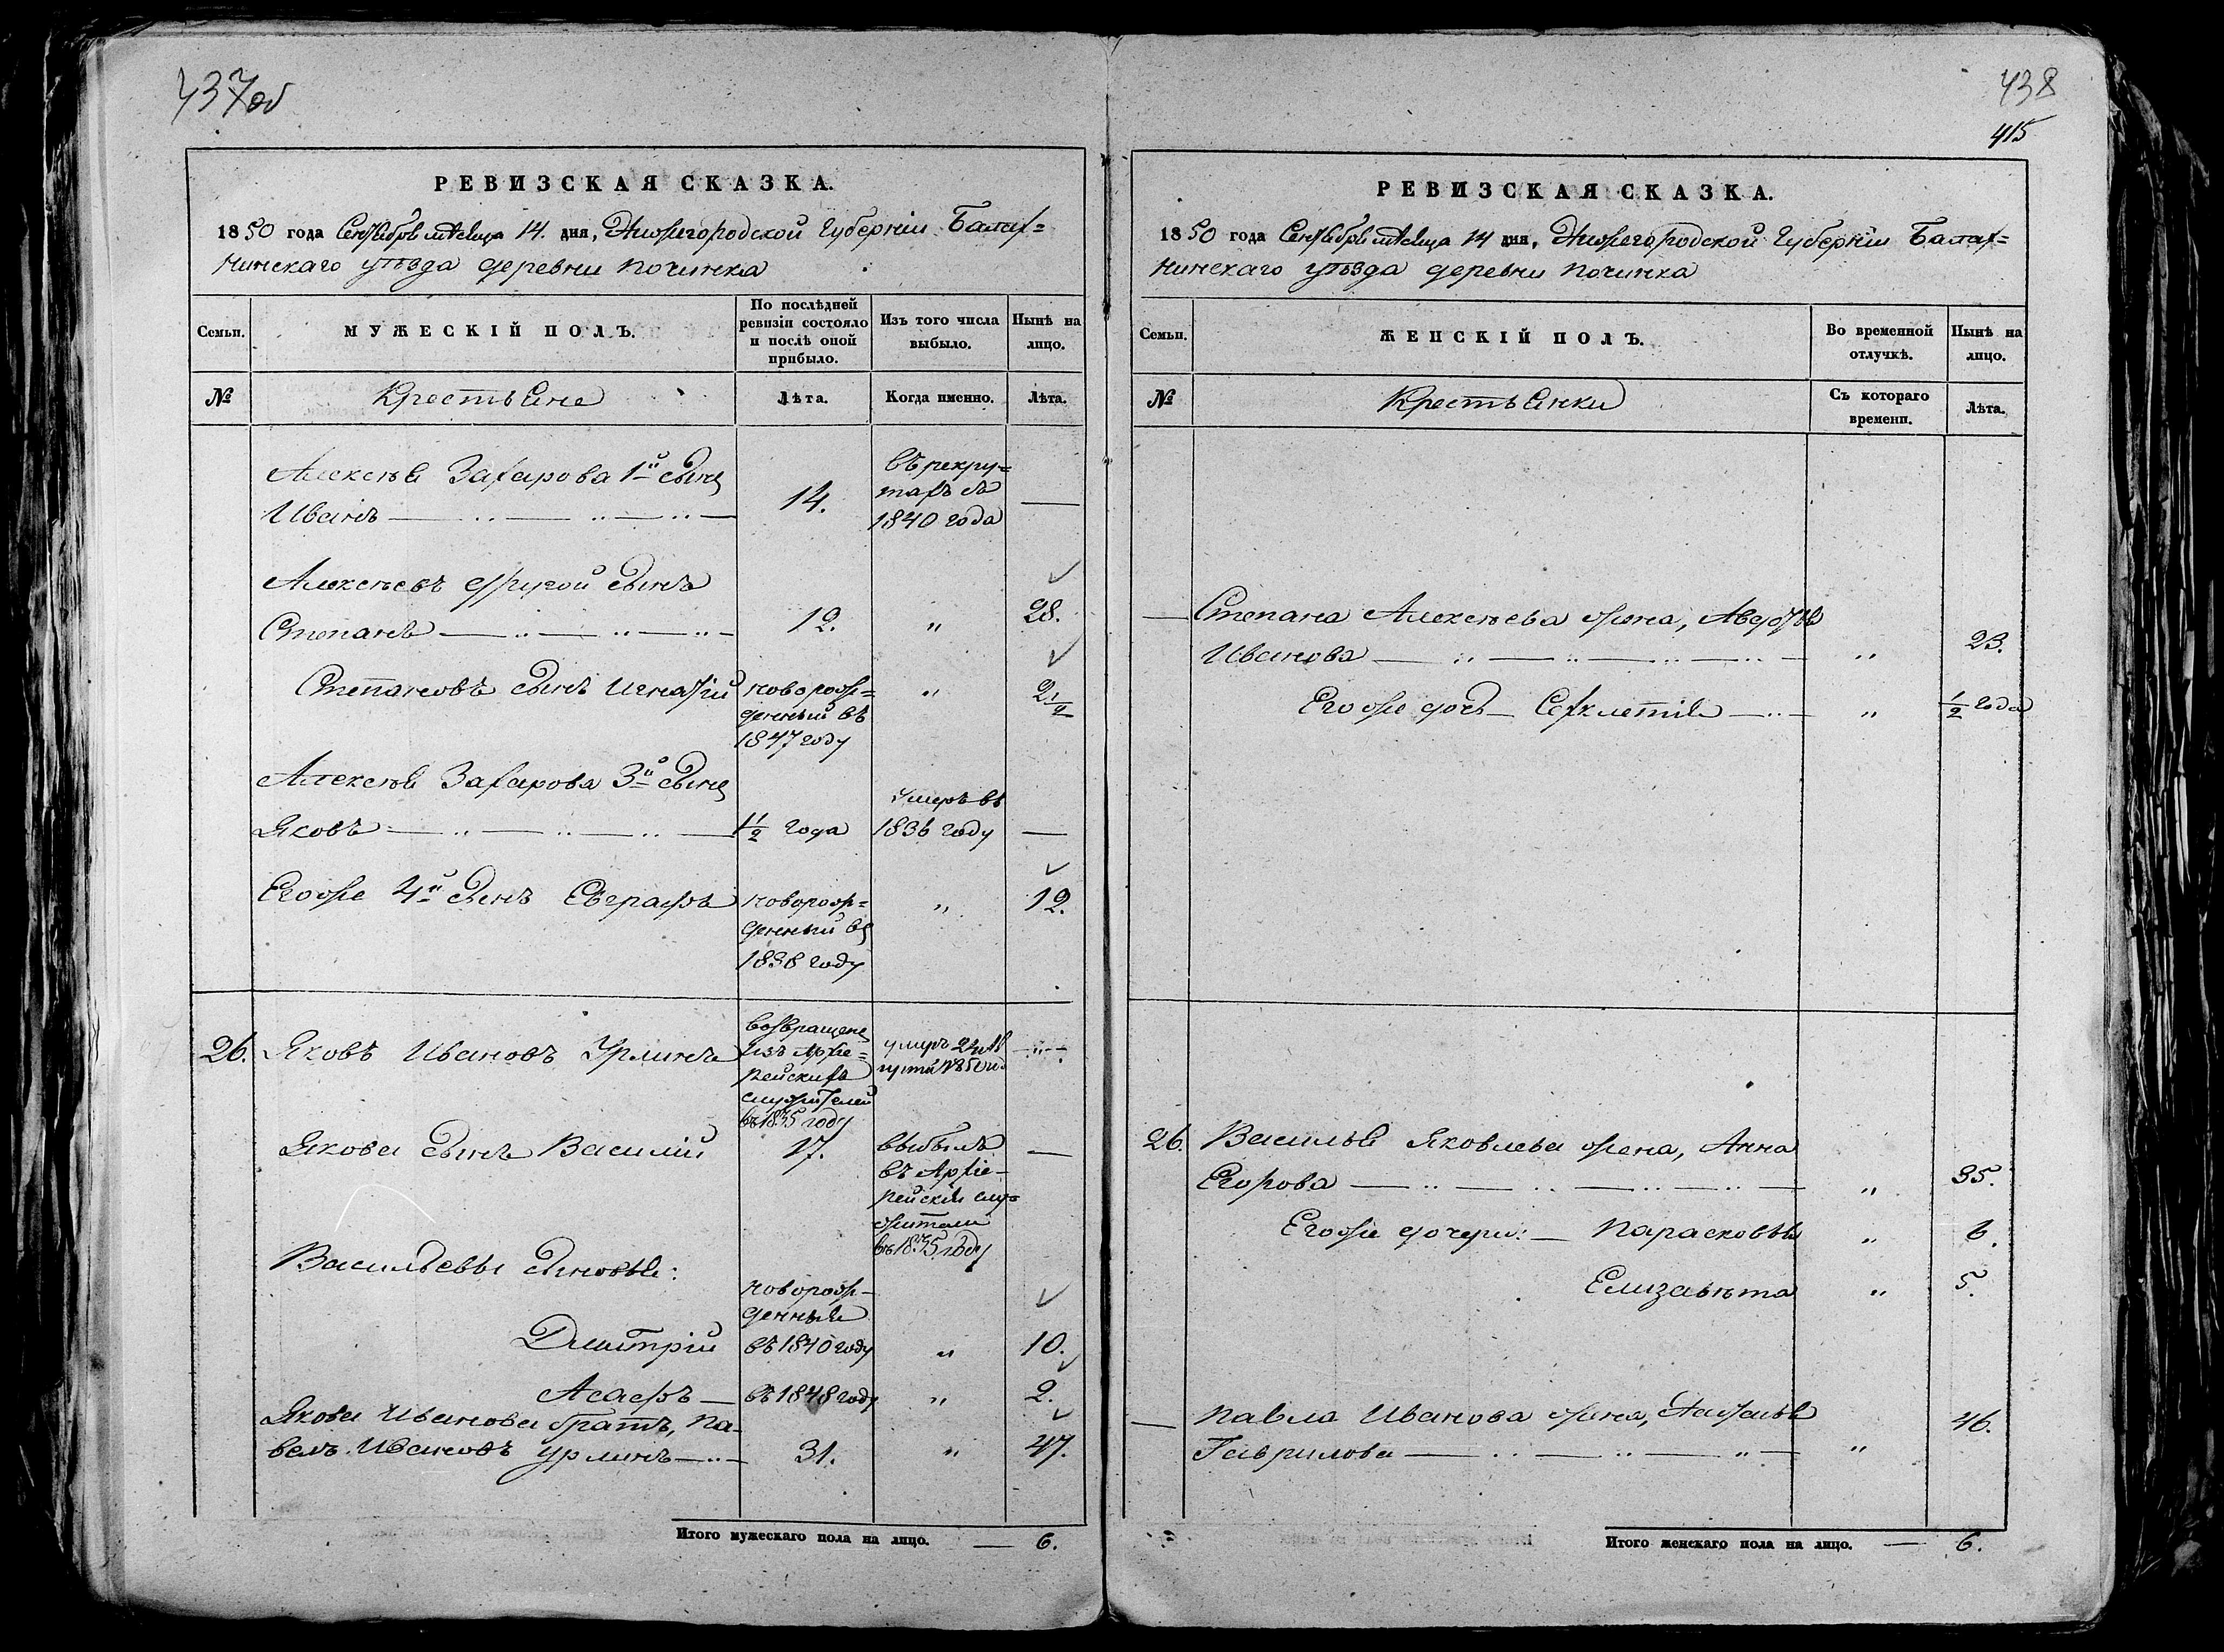 437об
РЕВИЗСКАЯ СКАЗКА.
1850 года Сентября мѣсяца 14. дня, Нижегородской Губерніи Балах=
нинскаго уѣзда деревни Починка
Семьи.
МУЖЕСКІЙ ПОЛЪ.
По послѣдней
ревизіи состояло
и послѣ оной
прибыло.
Изъ того числа
выбыло.
Нынѣ на
лицо.
№
Крестьяне
Лѣта.
Когда именно.
Лѣта.
Алексѣя Захарова 1й сынъ
Иванъ
14.
въ рекру=
тахъ съ
1840 года
—
Алексѣевъ другой сынъ
Степанъ
12.
"
28.
Степановъ сынъ Игнатій
новорож=
денный въ
1847 году
"
2 1/2
Алексѣя Захарова 3й сынъ
Яковъ
1 1/2 года
умеръ въ
1836 году
—
Егоже 4й сынъ Евграфъ
новорож=
денный въ
1838 году
"
12.
26.
Яковъ Ивановъ Урлинъ
возвращенъ
изъ Архіе=
рейскихъ
служителей
въ 1835 году
умеръ
—"—
Якова сынъ Василій
17.
выбылъ
въ Архіе-
рейскія слу=
жители
въ 1835 году
—
Васильевы сыновья:
новорож-
денныя
Дмитрій
въ 1840 году
"
10.
Асафъ —
въ 1848 году
"
2.
Якова Иванова братъ, Па-
велъ Ивановъ Урлинъ
31.
"
47.
Итого мужескаго пола на лицо. — 6.
438
415
РЕВИЗСКАЯ СКАЗКА.
1850 года Сентября мѣсяца 14 дня, Нижегородской Губерніи Балах=
нинскаго уѣзда деревни Починка
Семьи.
ЖЕНСКІЙ ПОЛЪ.
Во временной
отлучкѣ.
Нынѣ на
лицо.
№
Крестьянки
Съ котораго
времени.
Лѣта.
— Степана Алексѣева жена, Авдотья
Иванова
"
23.
Егоже дочь — Секлетія
"
1/2 года
26.
Василья Яковлева жена, Анна
Егорова
"
35.
Егоже дочери: — Парасковья
"
6.
Елизавѣта
"
5.
— Павла Иванова жена,
Гаврилова
"
46.
Итого женскаго пола на лицо. — 6.